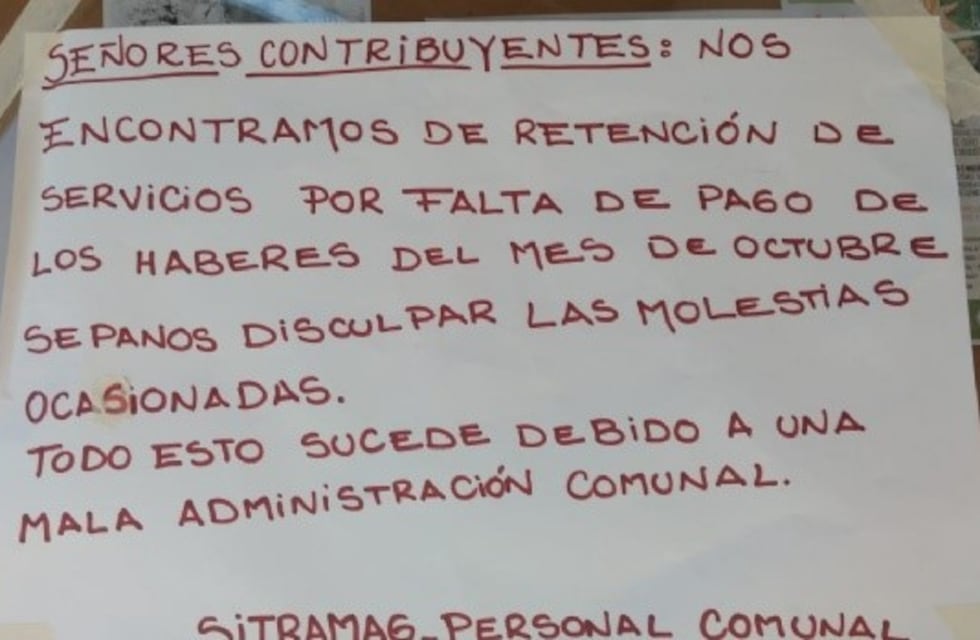 SEÑORES CONTRIBUYENTES: NOS
ENCONTRAMOS DE RETENCIÓN DE
SERVICIOS POR FALTA DE PAGO DE
LOS HABERES DEL MES DE OCTUBRE
SEPANOS DISCULPAR LAS MOLESTIAS
OCASIONADAS.
TODO ESTO SUCEDE DEBIDO A UNA
MALA ADMINISTRACIÓN COMUNAL.
SITRAMAG-PERSONAL COMUNAL